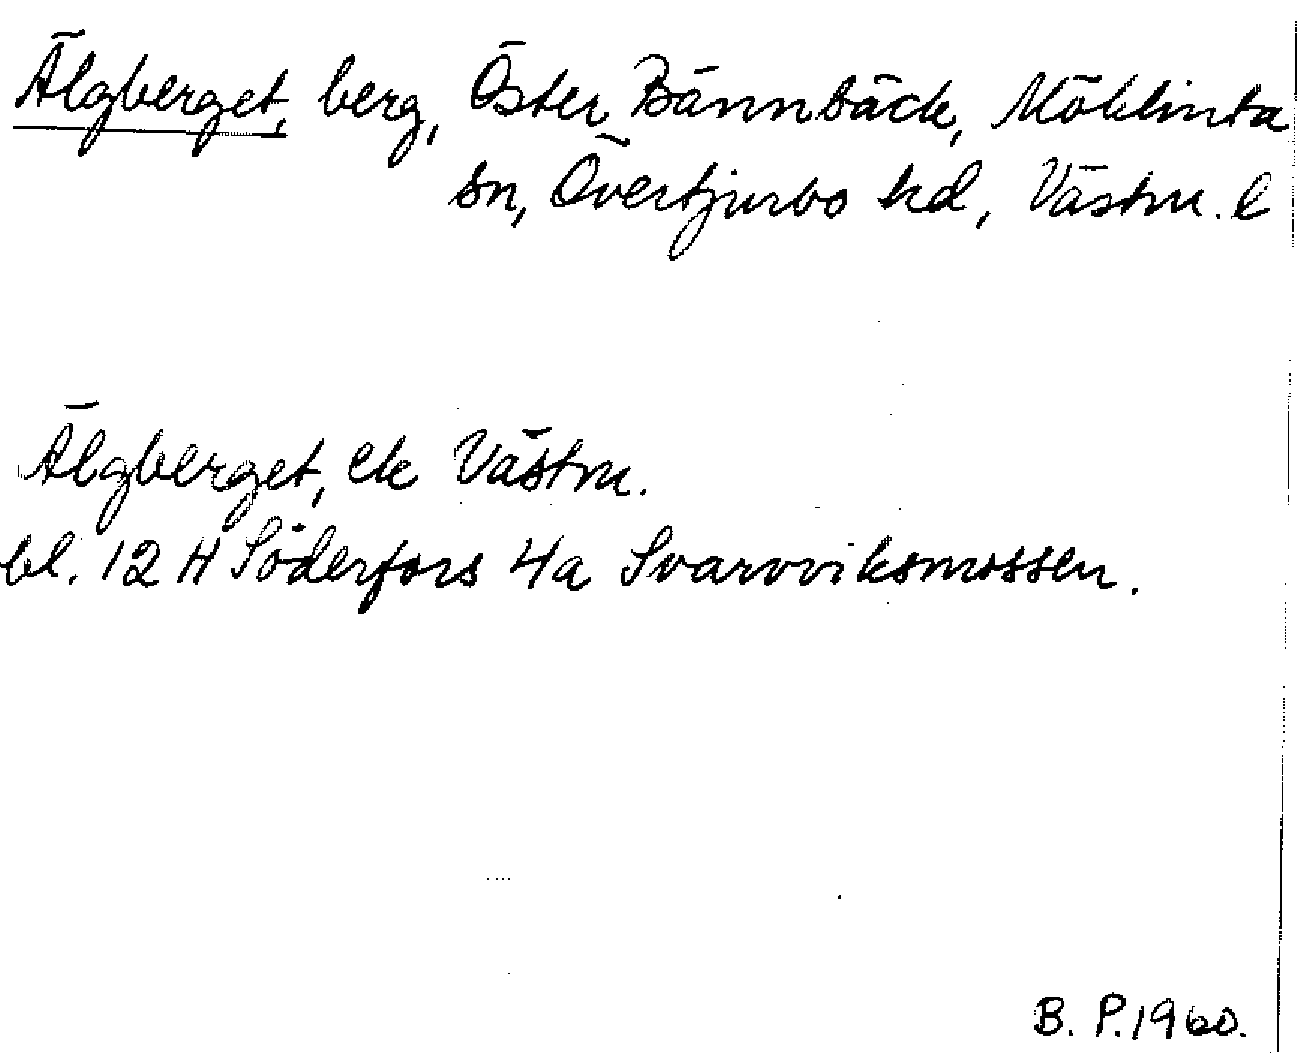 Älgberget, berg, Öster Bännbäck, Möklinta
sn, Övertjurbo hd, Västm. l
Älgberget, ek Västm.
bl. 12 H Söderfors 4a Svarvviksmossen.
B. P. 1960.